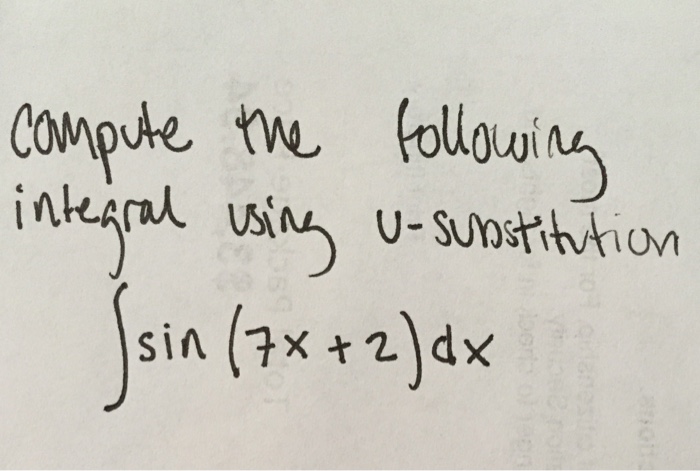 compute the following
integral using u-substitution
∫sin (7x + 2) dx